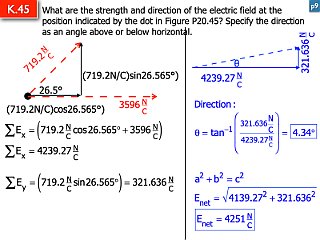 K.45
What are the strength and direction of the electric field at the
position indicated by the dot in Figure P20.45? Specify the direction
as an angle above or below horizontal.
p9
719.2 N/C
26.5°
(719.2N/C)sin26.565°)
(719.2N/C)cos26.565°)
3596 N/C
∑Ex = (719.2 N/C cos26.565° + 3596 N/C)
∑Ex = 4239.27 N/C
∑Ey = (719.2 N/C sin26.565°) = 321.636 N/C
θ
4239.27 N/C
321.636 N/C
Direction:
θ = tan⁻¹ (321.636 N/C / 4239.27 N/C) = 4.34°
a² + b² = c²
Enet = √4139.27² + 321.636²
Enet = 4251 N/C